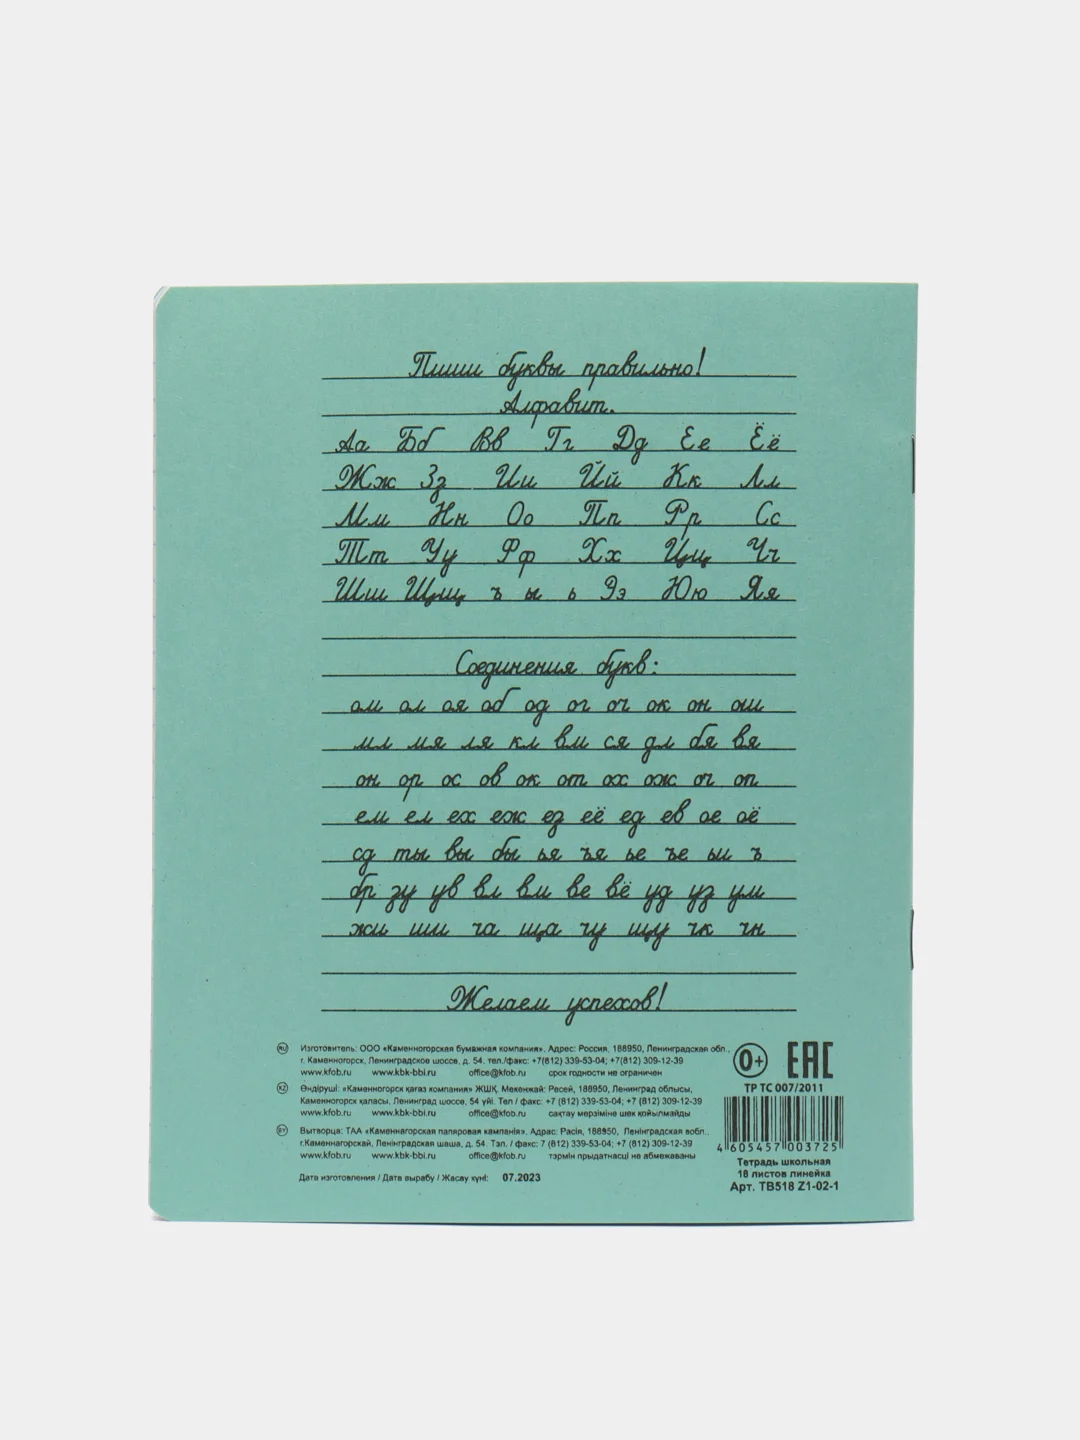 Пиши буквы правильно!
Алфавит.
Аа Бб Вв Гг Дд Ее Ёё
Жж Зз Ии Йй Кк Лл
Мм Нн Оо Пп Рр Сс
Тт Уу Фф Хх Цц Чч
Шш Щщ ъ ы ь Ээ Юю Яя
Соединения букв:
ом ол оя об од ог оч ок он ош
мл мя ля кл вм ся дл бя вя
он ор ос ов ок от ох ож оч оп
ем ел ех еж ез её ед ев ое оё
сд ты вы бы ья ъя ье ъе ьи ъ
бр зу ув вл вм ве вё уд уз ум
жи ши ча ща чу щу чк чн
Желаем успехов!
RU Изготовитель: ООО «Каменногорская бумажная компания». Адрес: Россия, 188950, Ленинградская обл.,
г. Каменногорск, Ленинградское шоссе, д. 54. тел./факс: +7(812) 339-53-04; +7(812) 309-12-39
www.kfob.ru www.kbk-bbi.ru office@kfob.ru срок годности не ограничен
KZ Өндіруші: «Каменногорск қағаз компания» ЖШҚ. Мекенжай: Ресей, 188950, Ленинград облысы,
Каменногорск қаласы, Ленинград шоссе, 54 үйі. Тел / факс: +7 (812) 339-53-04; +7 (812) 309-12-39
www.kfob.ru www.kbk-bbi.ru office@kfob.ru сақтау мерзіміне шек қойылмайды
BY Вытворца: ТАА «Каменнагорская папяровая кампанія». Адрас: Расія, 188950, Ленінградская вобл.,
г.Каменнагорскай, Ленінградская шаша, д. 54. Тэл. / факс: 7 (812) 339-53-04; +7 (812) 309-12-39
www.kfob.ru www.kbk-bbi.ru office@kfob.ru тэрмін прыдатнасці не абмежаваны
Дата изготовления / Дата вырабу / Жасау күні: 07.2023
0+ EAC
ТР ТС 007/2011
4 605457 003725
Тетрадь школьная
18 листов линейка
Арт. ТВ518 Z1-02-1